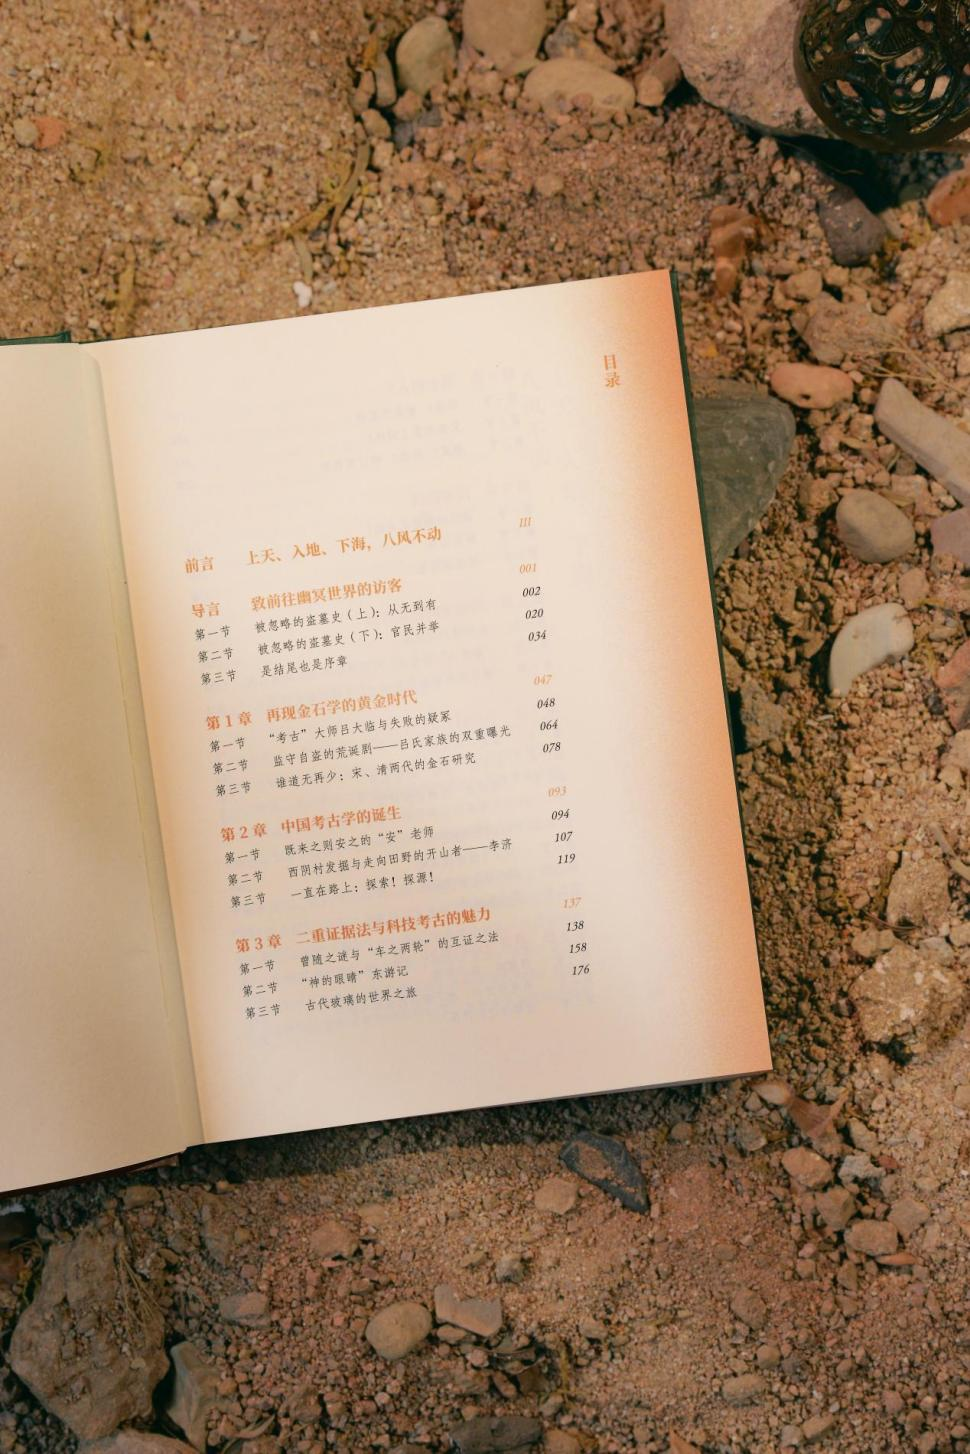 目录
前言 上天、入地、下海，八风不动 III
导言 致前往幽冥世界的访客 001
第一节 被忽略的盗墓史（上）：从无到有 002
第二节 被忽略的盗墓史（下）：官民并举 020
第三节 是结尾也是序章 034
第1章 再现金石学的黄金时代 047
第一节 “考古”大师吕大临与失败的疑冢 048
第二节 监守自盗的荒诞剧——吕氏家族的双重曝光 064
第三节 谁道无再少：宋、清两代的金石研究 078
第2章 中国考古学的诞生 093
第一节 既来之则安之的“安”老师 094
第二节 西阴村发掘与走向田野的开山者——李济 107
第三节 一直在路上：探索！探源！ 119
第3章 二重证据法与科技考古的魅力 137
第一节 曾随之谜与“车之两轮”的互证之法 138
第二节 “神的眼睛”东游记 158
第三节 古代玻璃的世界之旅 176